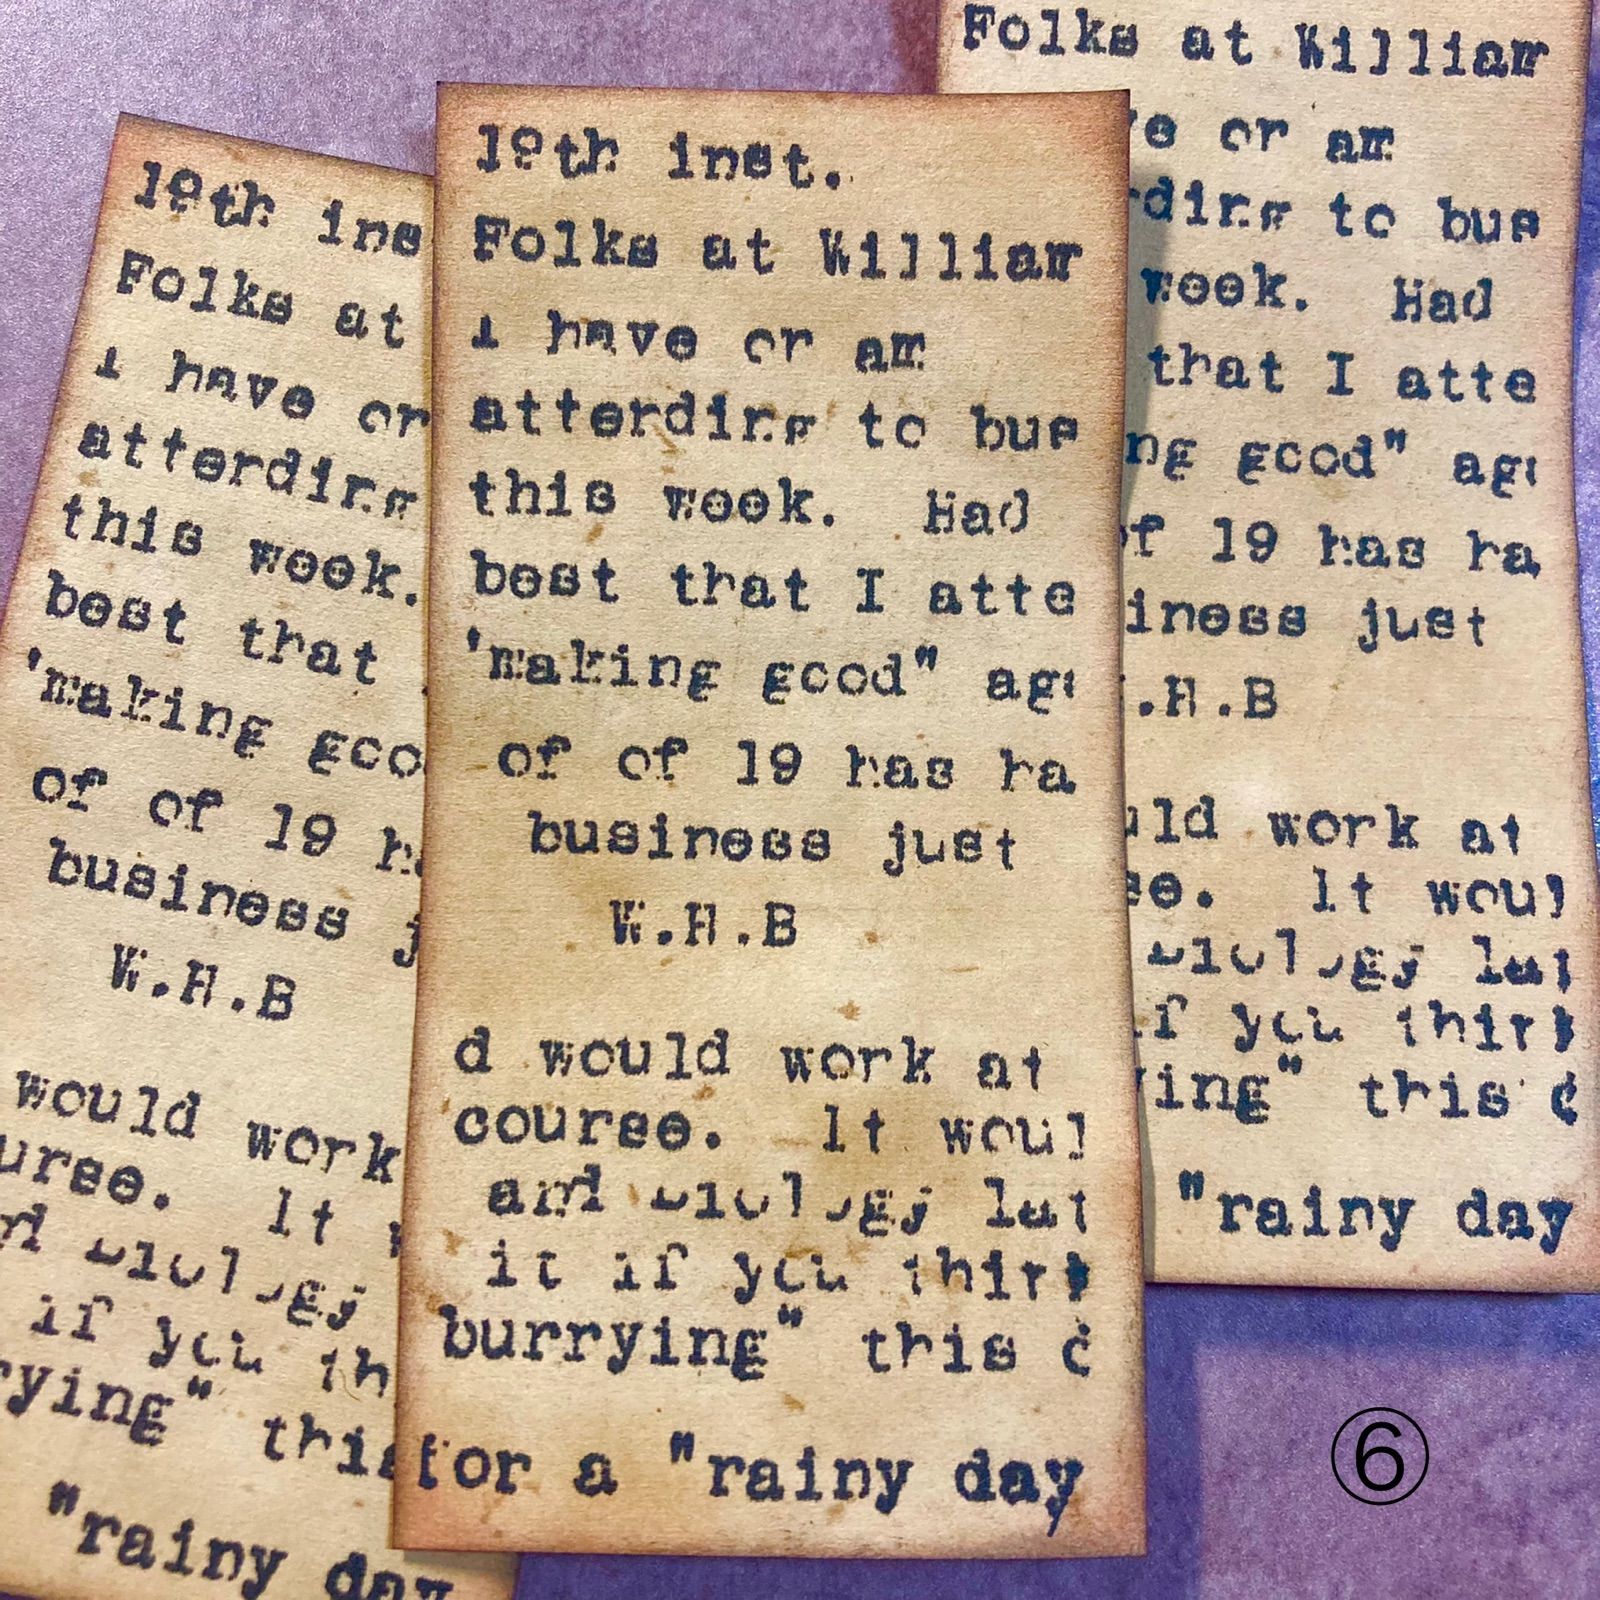 19th inst.
Folks at William
I have or am
attending to bus
this week. Had
best that I atte
"making good" aga
of of 19 has ha
business just
W.H.B
d would work at
course. It woul
and biology lat
it if you think
burrying" this c
for a "rainy day
19th ins
Folks at
I have or
attending
this week.
best that
'making goo
of of 19 ha
business j
W.H.B
would work
urse. It w
nd biology
if you th
rying" this
"rainy day
Folks at William
ve or am
rding to bus
week. Had
that I atte
ng good" aga
of 19 has ha
iness just
.H.B
uld work at
se. It woul
biology lat
if you think
ying" this c
"rainy day
⑥